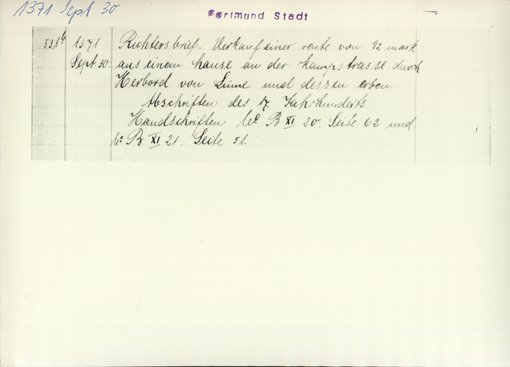 1371 Sept 30
Dortmund Stadt
1371
Sept. 30.
Richtersbrief. Verkauf einer rente von 1/2 mark
aus einem hause an der Kampstrasse durch
Herbord von Lünne und dessen erben
Abschriften des 17. Jahrhunderts
Handschriften B XI 20. Seite 62 und
B XI 21. Seite 51.